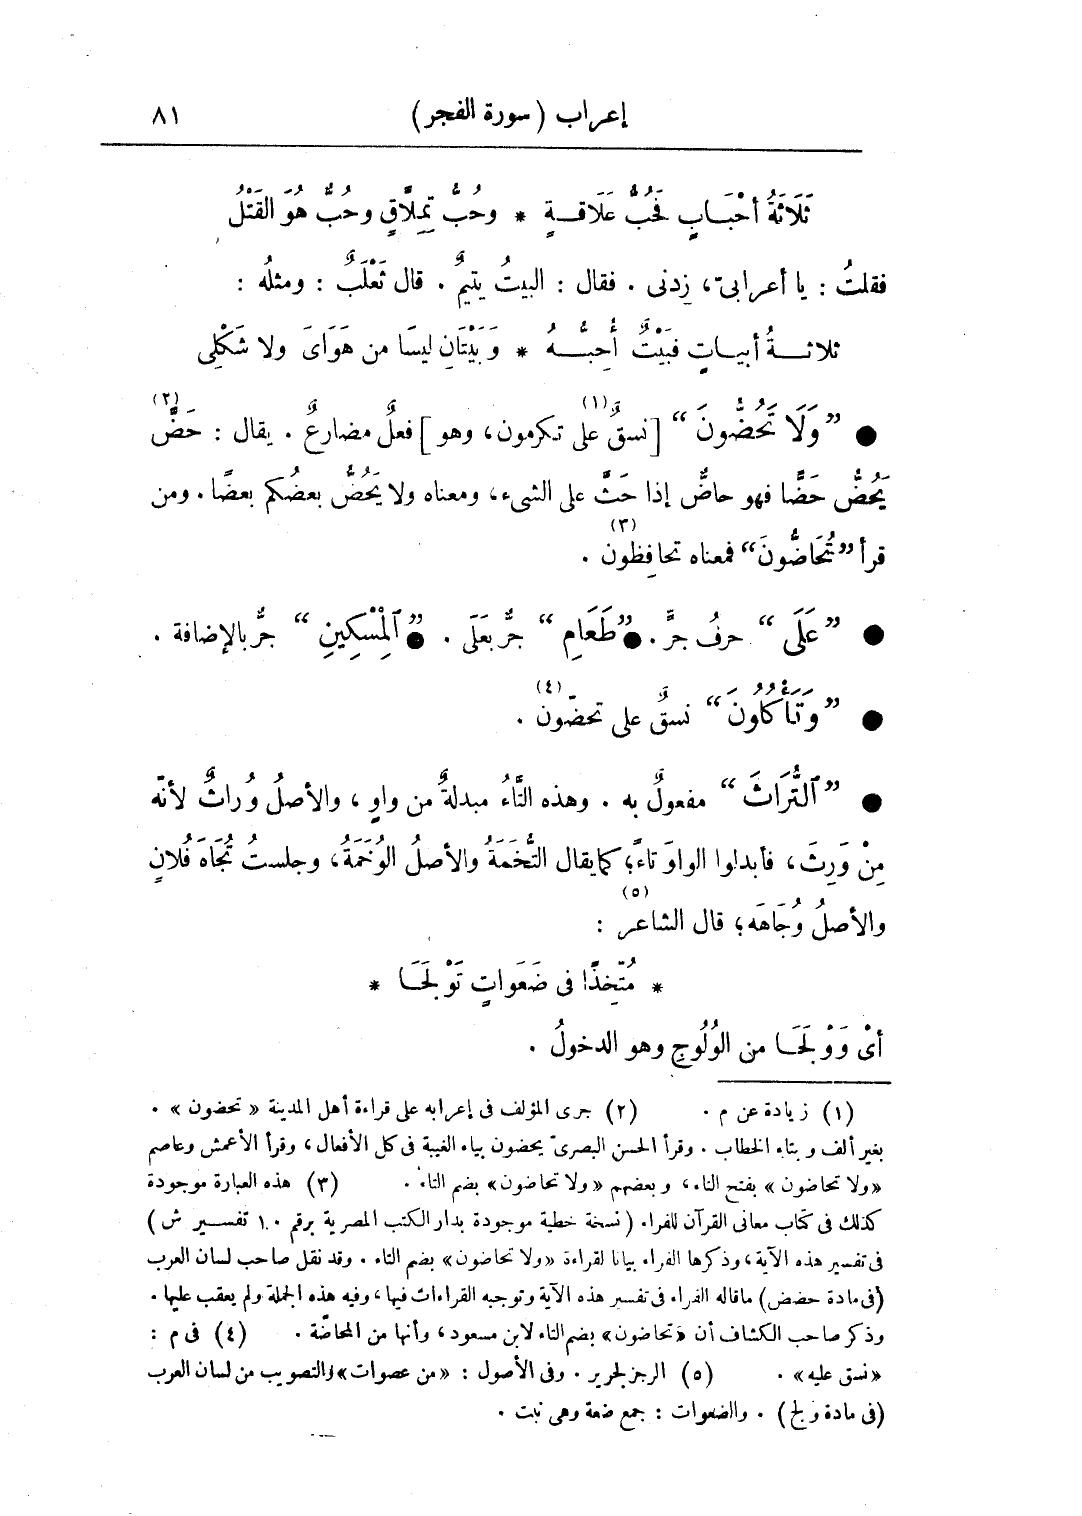 إعراب (سورة الفجر) ٨١
ثَلَاثَةُ أَحْبَابٍ فَحُبُّ عَلَاقَةٍ * وحُبُّ تِمِلَّاقٍ وحُبُّ هُوَ القَتْلُ
فقلتُ : يا أعرابىّ، زِدنى . فقال : البيتُ يتيمٌ . قال ثَعْلَبٌ : ومثلُه :
ثلاثةُ أبياتٍ فبَيْتٌ أُحِبُّهُ * وَبَيْتَانِ ليسَا من هَوَاىَ ولا شَكْلِى
● ”وَلَا تَحُضُّونَ“ [نسقٌ(١) على تكرمون، وهو] فعلٌ مضارعٌ . يقال : حَضَّ(٢)
يَحُضُّ حَضًّا فهو حاضٌّ إذا حَثَّ على الشىء، ومعناه ولا يَحُضُّ بعضُكم بعضًا. ومن
قرأ ”تُحَاضُّونَ“ فمعناه تحافِظون(٣) .
● ”عَلَى“ حرفُ جرٍّ . ● ”طَعَامِ“ جرٌّ بعَلَى . ● ”ٱلْمِسْكِينِ“ جرٌّ بالإضافة .
● ”وَتَأْكُلُونَ“ نسقٌ على تحضّون(٤) .
● ”ٱلتُّرَاثَ“ مفعولٌ به . وهذه التَّاءُ مبدلةٌ من واوٍ ، والأصلُ وُراثٌ لأنّه
مِنْ وَرِثَ، فأبدلوا الواوَ تاءً؛ كما يقال التُّخَمَةُ والأصلُ الوُخَمَةُ، وجلستُ تُجَاهَ فُلانٍ
والأصلُ وُجَاهَه؛ قال الشاعر(٥) :
* مُتَّخِذًا فى ضَعَواتٍ تَوْلَجَا *
أىْ وَوْلَجَا من الوُلُوجِ وهو الدخولُ .
(١) زيادة عن م . (٢) جرى المؤلف فى إعرابه على قراءة أهل المدينة «تحضون» .
بغير ألف وبتاء الخطاب . وقرأ الحسن البصرىّ يحضون بياء الغيبة فى كل الأفعال، وقرأ الأعمش وعاصم
«ولا تحاضون» بفتح التاء، وبعضهم «ولا تحاضون» بضم التاء . (٣) هذه العبارة موجودة
كذلك فى كتاب معانى القرآن للفراء (نسخة خطية موجودة بدار الكتب المصرية برقم ١٠ تفسير ش)
فى تفسير هذه الآية، وذكرها الفراء بيانا لقراءة «ولا تحاضون» بضم التاء . وقد نقل صاحب لسان العرب
(فى مادة حضض) ماقاله الفراء فى تفسير هذه الآية وتوجيه القراءات فيها، وفيه هذه الجملة ولم يعقب عليها .
وذكر صاحب الكشاف أن «تحاضون» بضم التاء لابن مسعود، وأنها من المحاضّة . (٤) فى م :
«نسق عليه» . (٥) الرجز لجرير . وفى الأصول : «من عصوات» والتصويب من لسان العرب
(فى مادة ولج) . والضعوات : جمع ضعة وهى نبت .